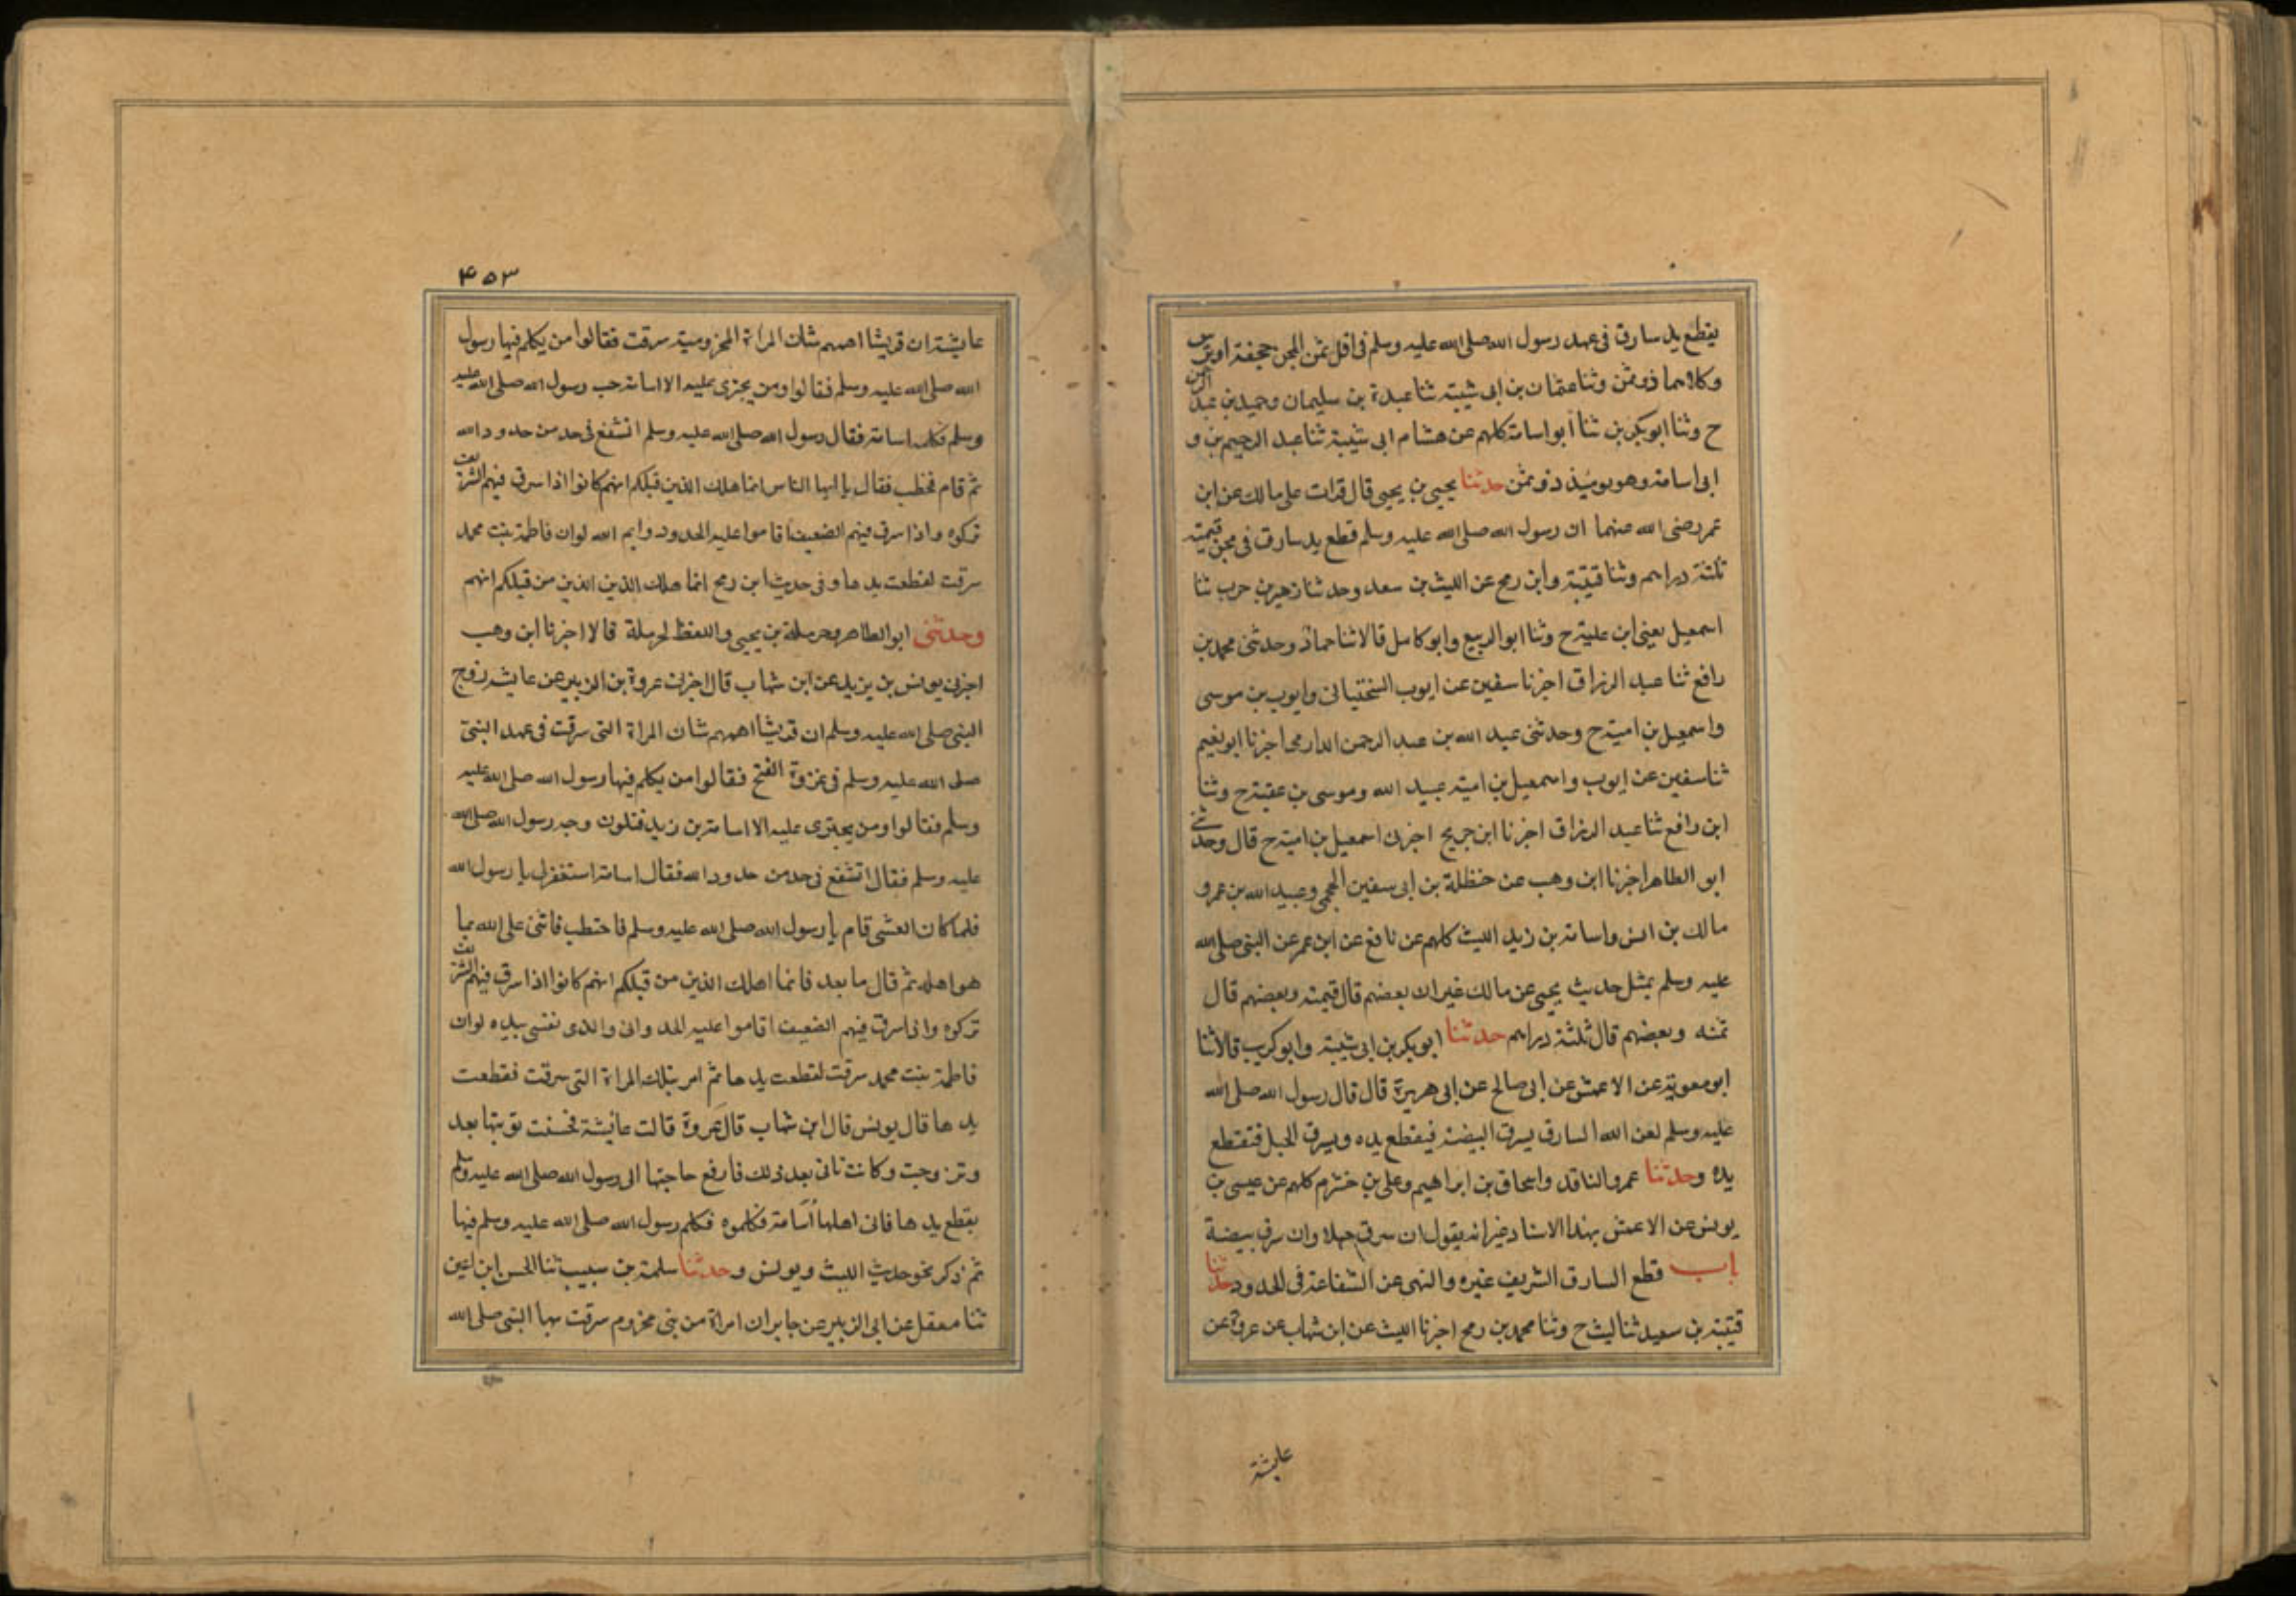 يقطع يد سارق فى عهد رسول الله صلى الله عليه وسلم فى اقل من ثمن المجن حجفة او ترس
وكلاهما ذو ثمن وثنا عثمان بن ابى شيبة ثنا عبدة بن سليمان وحميد بن عبد الرحمن
ح وثنا ابو بكر بن ثنا ابو اسامة كلهم عن هشام ابى شيبة ثنا عبد الرحيم بن و
ابى اسامة وهو يوميذ ذو ثمن حدثنا يحيى بن يحيى قال قرات على مالك عن ابن
عمر رضى الله عنهما ان رسول الله صلى الله عليه وسلم قطع يد سارق فى مجن قيمته
ثلثة دراهم وثنا قتيبة وابن رمح عن الليث بن سعد وحدثنا زهير بن حرب ثنا
اسمعيل يعنى ابن علية ح وثنا ابو الربيع وابو كامل قالا ثنا حماد وحدثنى محمد بن
رافع ثنا عبد الرزاق اخبرنا سفين عن ايوب السختيانى وايوب بن موسى
واسمعيل بن امية ح وحدثنى عبد الله بن عبد الرحمن الدارمى اخبرنا ابو نعيم
ثنا سفين عن ايوب واسمعيل بن امية عبيد الله وموسى بن عقبة ح وثنا
ابن رافع ثنا عبد الرزاق اخبرنا ابن جريج اخبرنى اسمعيل بن امية ح قال وحدثنى
ابو الطاهر اخبرنا ابن وهب عن حنظلة بن ابى سفين الجمحى وعبيد الله بن عمر و
مالك بن انس واسامة بن زيد الليث كلهم عن نافع عن ابن عمر عن النبى صلى الله
عليه وسلم بمثل حديث يحيى عن مالك غير ان بعضهم قال قيمته وبعضهم قال
ثمنه وبعضهم قال ثلثة دراهم حدثنا ابو بكر بن ابى شيبة وابو كريب قالا ثنا
ابو معوية عن الاعمش عن ابى صالح عن ابى هريرة قال قال رسول الله صلى الله
عليه وسلم لعن الله السارق يسرق البيضة فيقطع يده ويسرق الحبل فتقطع
يده وحدثنا عمرو الناقد واسحاق بن ابراهيم وعلى بن خشرم كلهم عن عيسى بن
يونس عن الاعمش بهذا الاسناد غير انه يقول ان سرق حبلا وان سرق بيضة
باب قطع السارق الشريف غيره والنهى عن الشفاعة فى الحدود حدثنا
قتيبة بن سعيد ثنا ليث ح وثنا محمد بن رمح اخبرنا الليث عن ابن شهاب عن عروة عن
عايشة
۴۵۳
عايشة ان قريشا اهمهم شان المراة المخزومية سرقت فقالوا من يكلم فيها رسول
الله صلى الله عليه وسلم فقالوا ومن يجترى عليه الا اسامة حب رسول الله صلى الله عليه
وسلم فكلمه اسامة فقال رسول الله صلى الله عليه وسلم اتشفع فى حد من حدود الله
ثم قام فخطب فقال يا ايها الناس انما هلك الذين قبلكم انهم كانوا اذا سرق فيهم الشريف
تركوه واذا سرق فيهم الضعيف اقاموا عليه الحدود وايم الله لو ان فاطمة بنت محمد
سرقت لقطعت يدها وفى حديث ابن رمح انما هلك الذين الذين من قبلكم انهم
وحدثنى ابو الطاهر وحرملة بن يحيى واللفظ لحرملة قالا اخبرنا ابن وهب
اخبرنى يونس بن يزيد عن ابن شهاب قال اخبرنى عروة بن الزبير عن عايشة زوج
النبى صلى الله عليه وسلم ان قريشا اهمهم شان المراة التى سرقت فى عهد النبى
صلى الله عليه وسلم فى غزوة الفتح فقالوا من يكلم فيها رسول الله صلى الله عليه
وسلم فقالوا ومن يجترى عليه الا اسامة بن زيد فتلون وجه رسول الله صلى الله
عليه وسلم فقال اتشفع فى حد من حدود الله فقال اسامة استغفر لى يا رسول الله
فلما كان العشى قام يا رسول الله صلى الله عليه وسلم فاختطب فاثنى على الله بما
هو اهله ثم قال ما بعد فانما اهلك الذين من قبلكم انهم كانوا اذا سرق فيهم الشريف
تركوه وان سرق فيهم الضعيف اقاموا عليه الحد وانى والذى نفسى بيده لو ان
فاطمة بنت محمد سرقت لقطعت يدها ثم امر بتلك المراة التى سرقت فقطعت
يدها قال يونس قال ابن شهاب قال عروة قالت عائشة فحسنت توبتها بعد
وتزوجت وكانت تاتى بعد ذلك فارفع حاجتها الى رسول الله صلى الله عليه وسلم
بقطع يدها فاتى اهلها اسامة فكلموه فكلم رسول الله صلى الله عليه وسلم فيها
ثم ذكر نحو حديث الليث ويونس وحدثنا سلمة بن سبيب ثنا الحسن ابن اعين
ثنا معقل عن ابى الزبير عن جابر ان امراة من بنى مخزوم سرقت بها النبى صلى الله